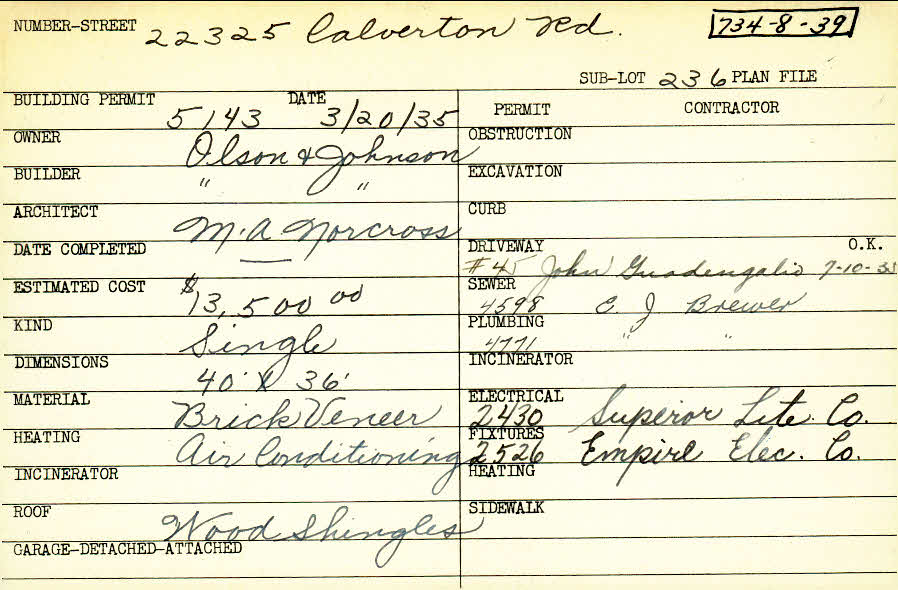 NUMBER-STREET 22325 Calverton Rd. 734-8-39
SUB-LOT 236 PLAN FILE
BUILDING PERMIT 5143 DATE 3/20/35
PERMIT CONTRACTOR
OWNER Olson & Johnson
OBSTRUCTION
BUILDER " "
EXCAVATION
ARCHITECT M.A Norcross
CURB
DATE COMPLETED —
DRIVEWAY O.K.
#45 John Guadengalio 7-10-35
ESTIMATED COST $13,500 00
SEWER 4598 E. J Brewer
KIND Single
PLUMBING 4771 " "
DIMENSIONS 40' X 36'
INCINERATOR
MATERIAL Brick Veneer
ELECTRICAL 2430 Superor Lite Co.
HEATING Air Conditioning
FIXTURES 2526 Empire Elec. Co.
INCINERATOR
HEATING
ROOF Wood Shingles
SIDEWALK
GARAGE-DETACHED-ATTACHED